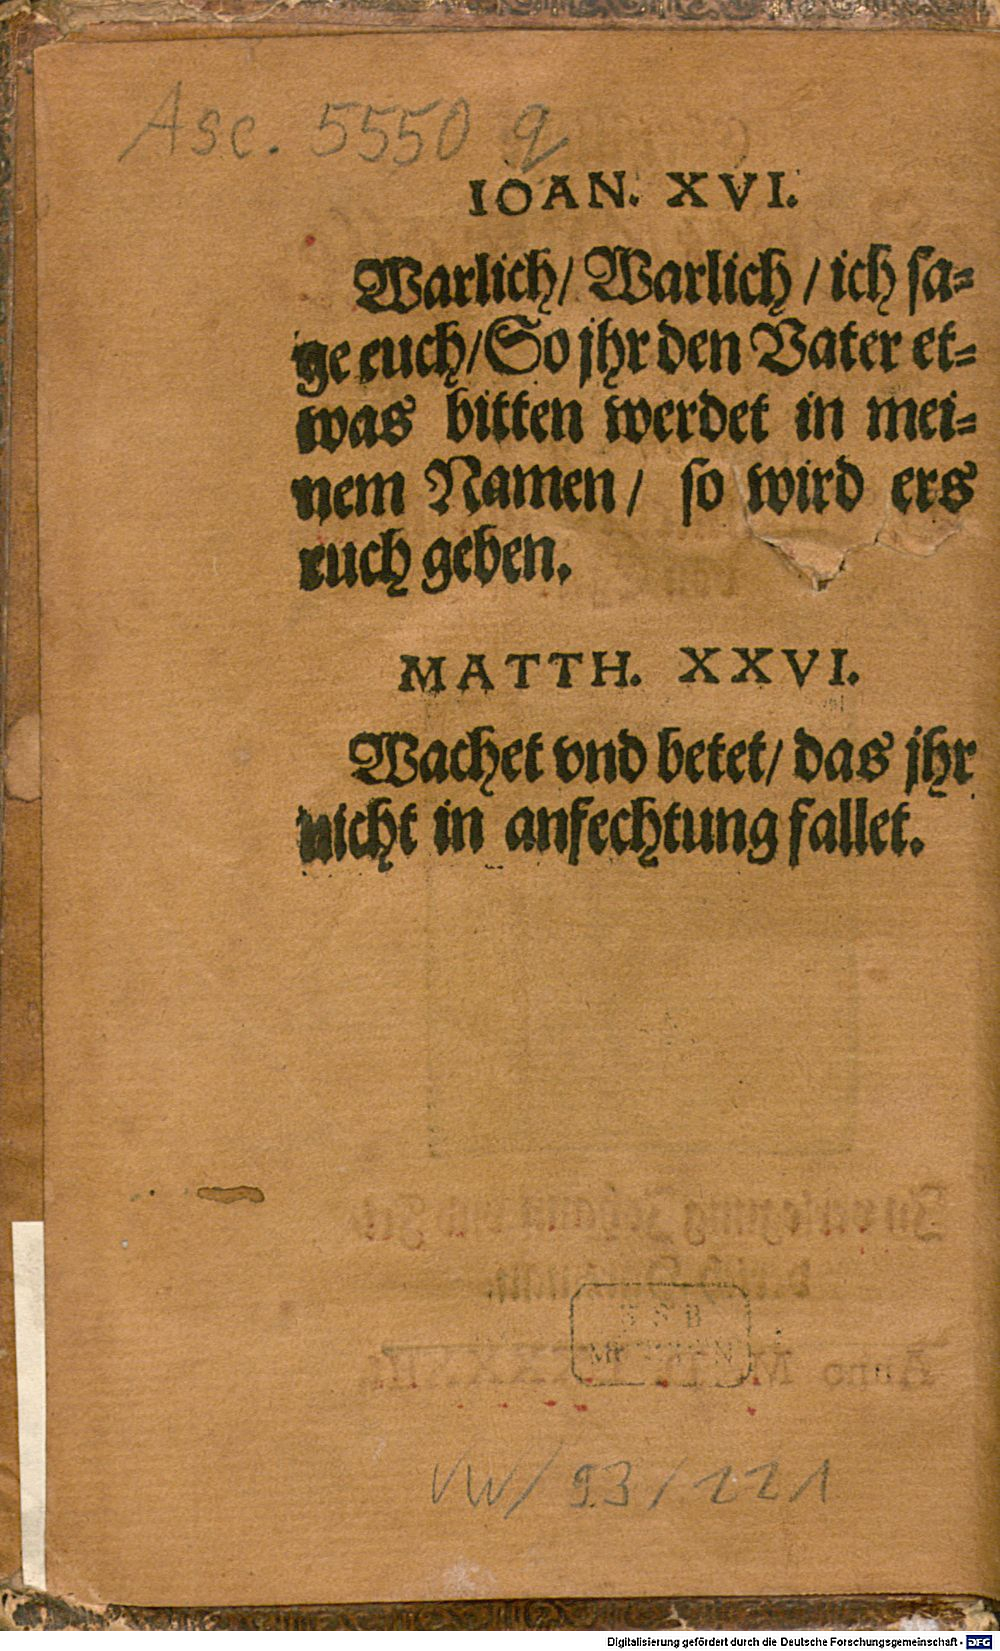 Asc. 5550 q
IOAN. XVI.
Warlich/ Warlich/ ich sa-
ge euch/ So jhr den Vater et-
was bitten werdet in mei-
nem Namen/ so wird ers
euch geben.
MATTH. XXVI.
Wachet vnd betet/ das jhr
nicht in anfechtung fallet.
BSB
MÜNCHEN
93/221
Digitalisierung gefördert durch die Deutsche Forschungsgemeinschaft - DFG